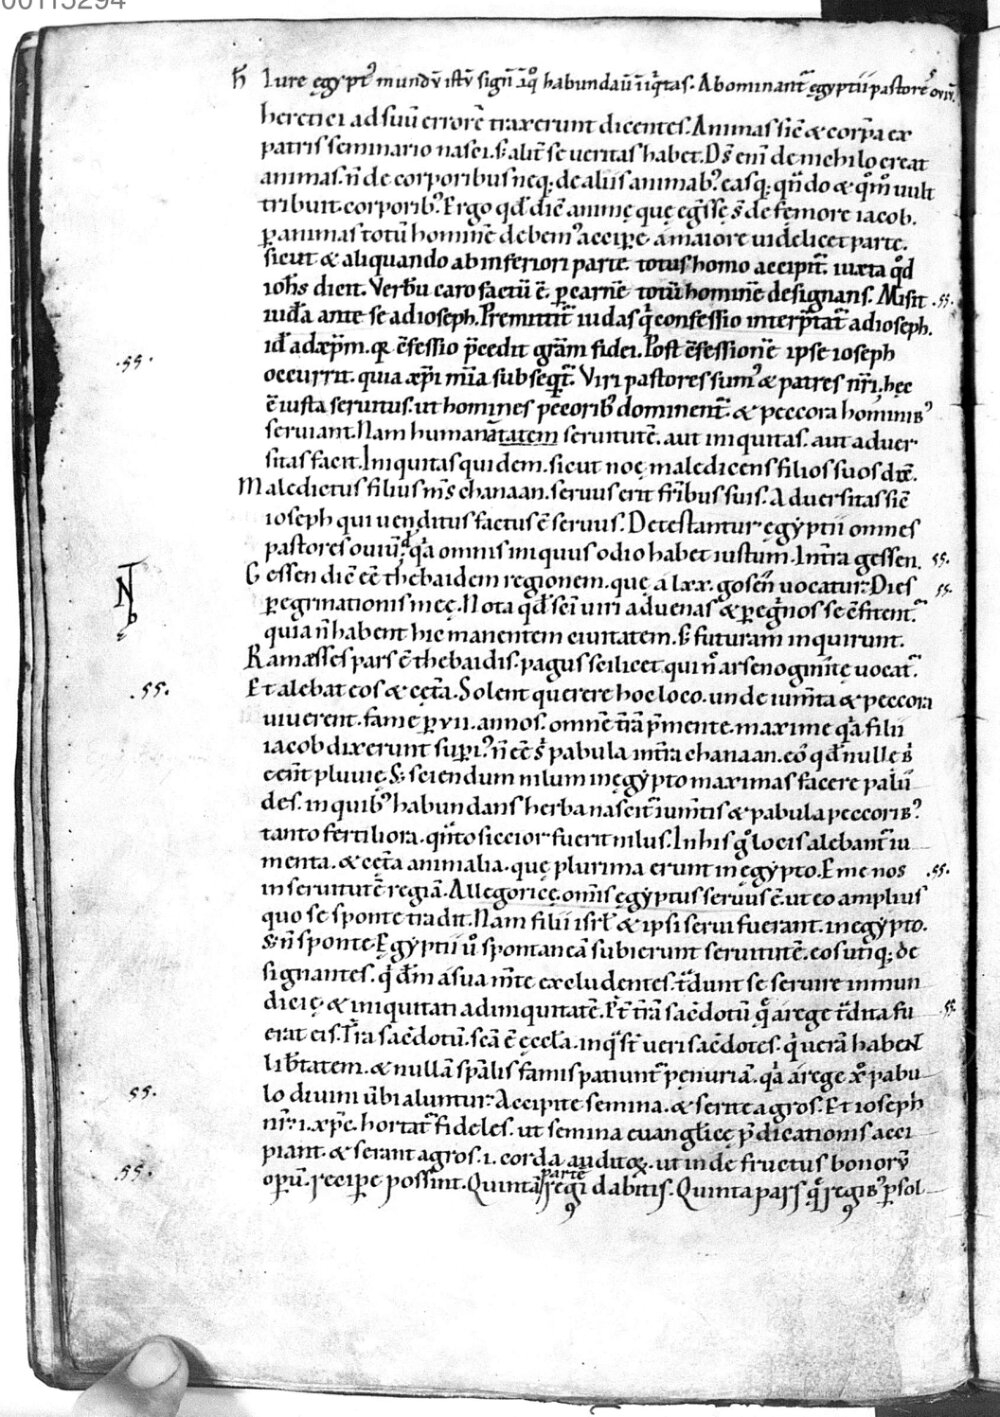 00115294
h̄ Iure ęgypt᷒ mundū istū sign̄ i̅ q̊ habundau̅ i̅iq̅tas. Abominant̄ ęgyptii pastores ouiū.
heretici ad suū errorē traxerunt dicentes. Animas sic̄ & corp̄a ex
patris seminario nasci. s; alit̄ se ueritas habet. D̄s eni̅ de nichilo creat
animas. n̄ de corporibus neq; de aliis animab᷒. easq; qn̄do & q̊m̊ uult
tribuit corporib᷒. Ergo qd̄ dic̄ animę quę eg̅ssę s̄ de femore iacob.
ꝑ animas totū hominē debem᷒ accipe̅ a maiore uidelicet parte.
sicut & aliquando ab inferiori parte totus homo accipit̄. iuxta q̊d
ioh̄s dicit. Verbū caro factū ē. ꝑ carnē totū hominē designans. Misit .ss.
iudā ante se ad ioseph. Premittit̄ iudas q̅ confessio interp̄tat̄ ad ioseph.
id̄ ad xp̄m. qr̄ c̄fessio p̄cedit grām fidei. Post c̄fessionē ipse ioseph
.ss.
occurrit. quia xp̄i mīa subseq̅t̄. Viri pastores sum᷒ & patres nr̄i. hęc
ē iusta seruitus. ut homines pecorib᷒ dominent̄. & peccora hominib᷒
seruiant. Nam humanā tatem seruitutē. aut iniquitas. aut aduer
sitas facit. Iniquitas quidem. sicut noę maledicens filios suos dic̄.
Maledictus filius m̄s chanaan. seruus erit fr̄ibus suis. Aduersitas sic̄
ioseph qui uenditus factus ē seruus. Detestantur ęgyptii omnes
pastores ouiū. q̅a omnis iniquus odio habet iustum. In tr̄a gessen. ss.
Gessen dic̄ eē thebaidem regionem. quę a lxx. gosen̄ uocatur. Dies ss.
ꝑegrinationis meę. Nota qd̄ sc̄i uiri aduenas & ꝑeg̅nos se c̄fitent̄.
quia n̄ habent hic manentem ciuitatem. s; futuram inquirunt.
Ramęsses pars ē thebaidis. pagus scilicet qui n̄ arsenoginitę uocat̄.
.ss.
Et alebat eos & cęt̄a. Solent querere hoc loco. unde ium̄ta & peccora
uiuerent. fame ꝑ vii. annos. omnē tr̄ā p̄mente. maxime q̅a filii
iacob dixerunt sup̄i᷒. n̄ eē s̄ pabula in tr̄a chanaan. eo̊ qd̄ nullę d̄
ccn̄t pluuię. S; sciendum nilum in ęgypto maximas facere palu̅
des. in quib᷒ habundans herba nascit̄ ium̄tis & pabula peccorib᷒
tanto fertiliora. qn̄to siccior fuerit nilus. In his g̊ locis alebant̄ iu
menta. & cęt̄a animalia. quę plurima erunt in ęgypto. Eme nos .ss.
in seruitutē regiā. Allegoricę. om̄is ęgyptus seruus ē. ut eo amplius
quo se sponte tradit. Nam filii isrł & ipsi serui fuerant. in ęgypto.
s; n̄ sponte. Ęgyptii ů spontaneā subierunt seruitutē. eos utiq; de
signantes. q̅ d̄m a sua m̄te excludentes. t̄dunt se seruire inmun
dicię. & iniquitati ad iniquitatē. Et̄ tr̄ā sac̄dotū q̨̊ a rege t̄dita fu ss.
erat eis. Tr̄a sac̄dotū. sc̄ā ē ęccła. in q̅ st̄ ueri sac̄dotes. q̅ uerā habent
lib̄tatem. & nullā sp̄alis famis patiunt̄ penuriā. q̅a a rege xp̊ pabu
.ss.
lo diuini u̅bi aluntur. Accipite semina. & serite agros. Et ioseph
nr̄. i. xp̄c. hortat̄ fideles. ut semina euanglicę p̄dicationis acci
.ss.
piant. & serant agros. i. corda auditoꝝ. ut inde fructus bonorū
parte̅
operū. recipe̅ possint. Quintā regi dabitis. Quinta pars q̨̊ regib᷒ ꝑsol